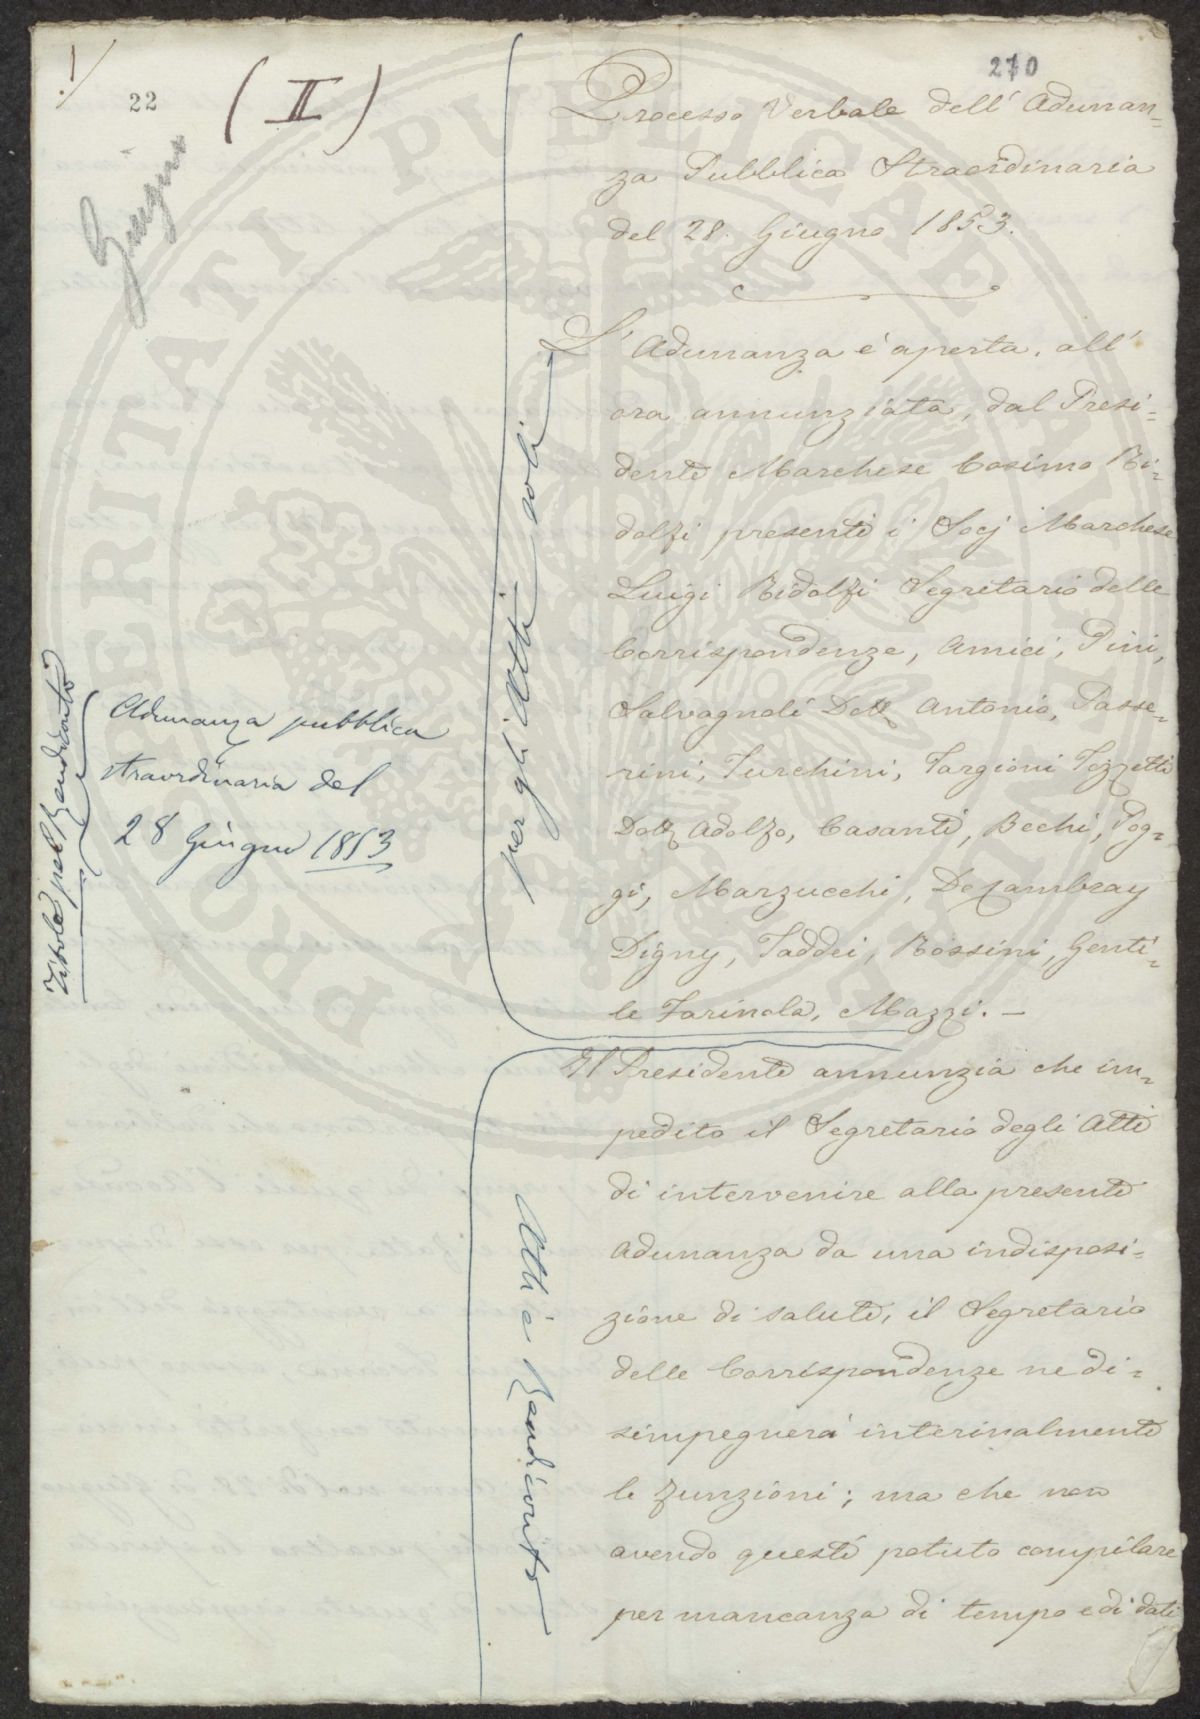 1/
22
(II)
Giugno
270
Processo Verbale dell' Adunan=
za Pubblica Straordinaria
del 28. Giugno 1853.
L'Adunanza è aperta, all'
ora annunziata, dal Presi=
dente Marchese Cosimo Ri=
dolfi presenti i Socj Marchese
Luigi Ridolfi Segretario delle
Corrispondenze, Amici, Pini,
Salvagnoli Dott. Antonio, Passe=
rini, Turchini, Targioni Tozzetti
Dott. Adolfo, Casanti, Bechi, Pog=
gi, Marzucchi, DeCambray
Digny, Taddei, Rossini, Genti=
le Farinola, Mazzi. —
Il Presidente annunzia che im=
pedito il Segretario degli Atti
di intervenire alla presente
Adunanza da una indisposi=
zione di salute, il Segretario
delle Corrispondenze ne di=
simpegnerà interinalmente
le funzioni; ma che non
avendo questi potuto compilare
per mancanza di tempo e di dati
per gli Atti soli
Atti e Rendiconto
Titolo pel Rendiconto
Adunanza pubblica
straordinaria del
28 Giugno 1853
PROSPERITATI PUBLICAE AUGENDAE